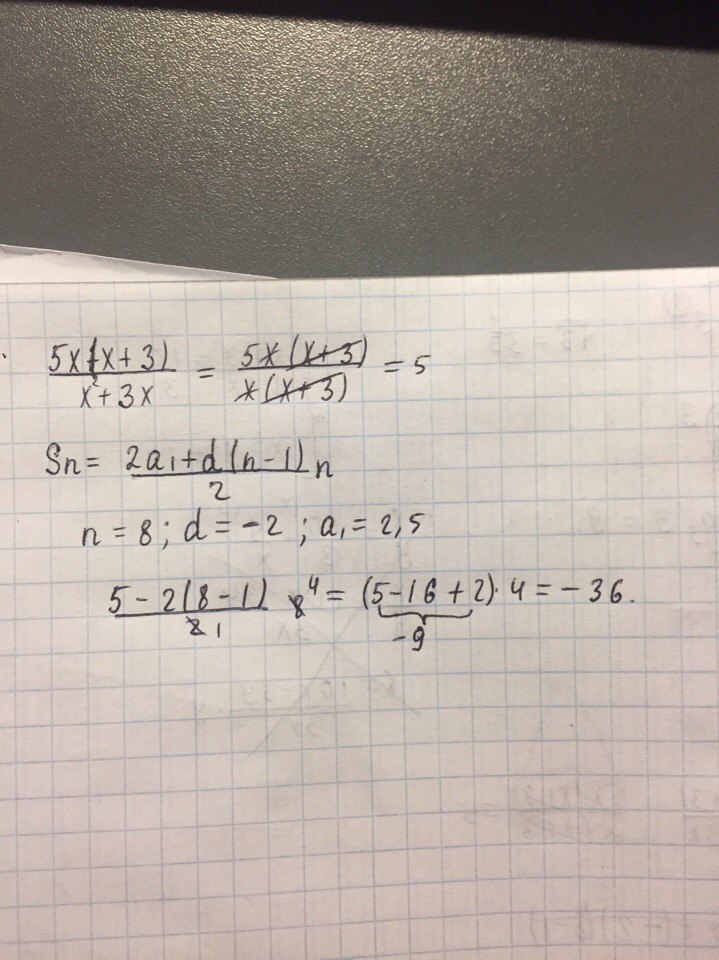 5x(x+3) / x²+3x = 5x(x+3) / x(x+3) = 5
Sn = 2a₁+d(n-1) / 2 n
n = 8; d = -2; a₁ = 2,5
5-2(8-1) / 2 1 8 4 = (5-16+2)·4 = -36.
-9